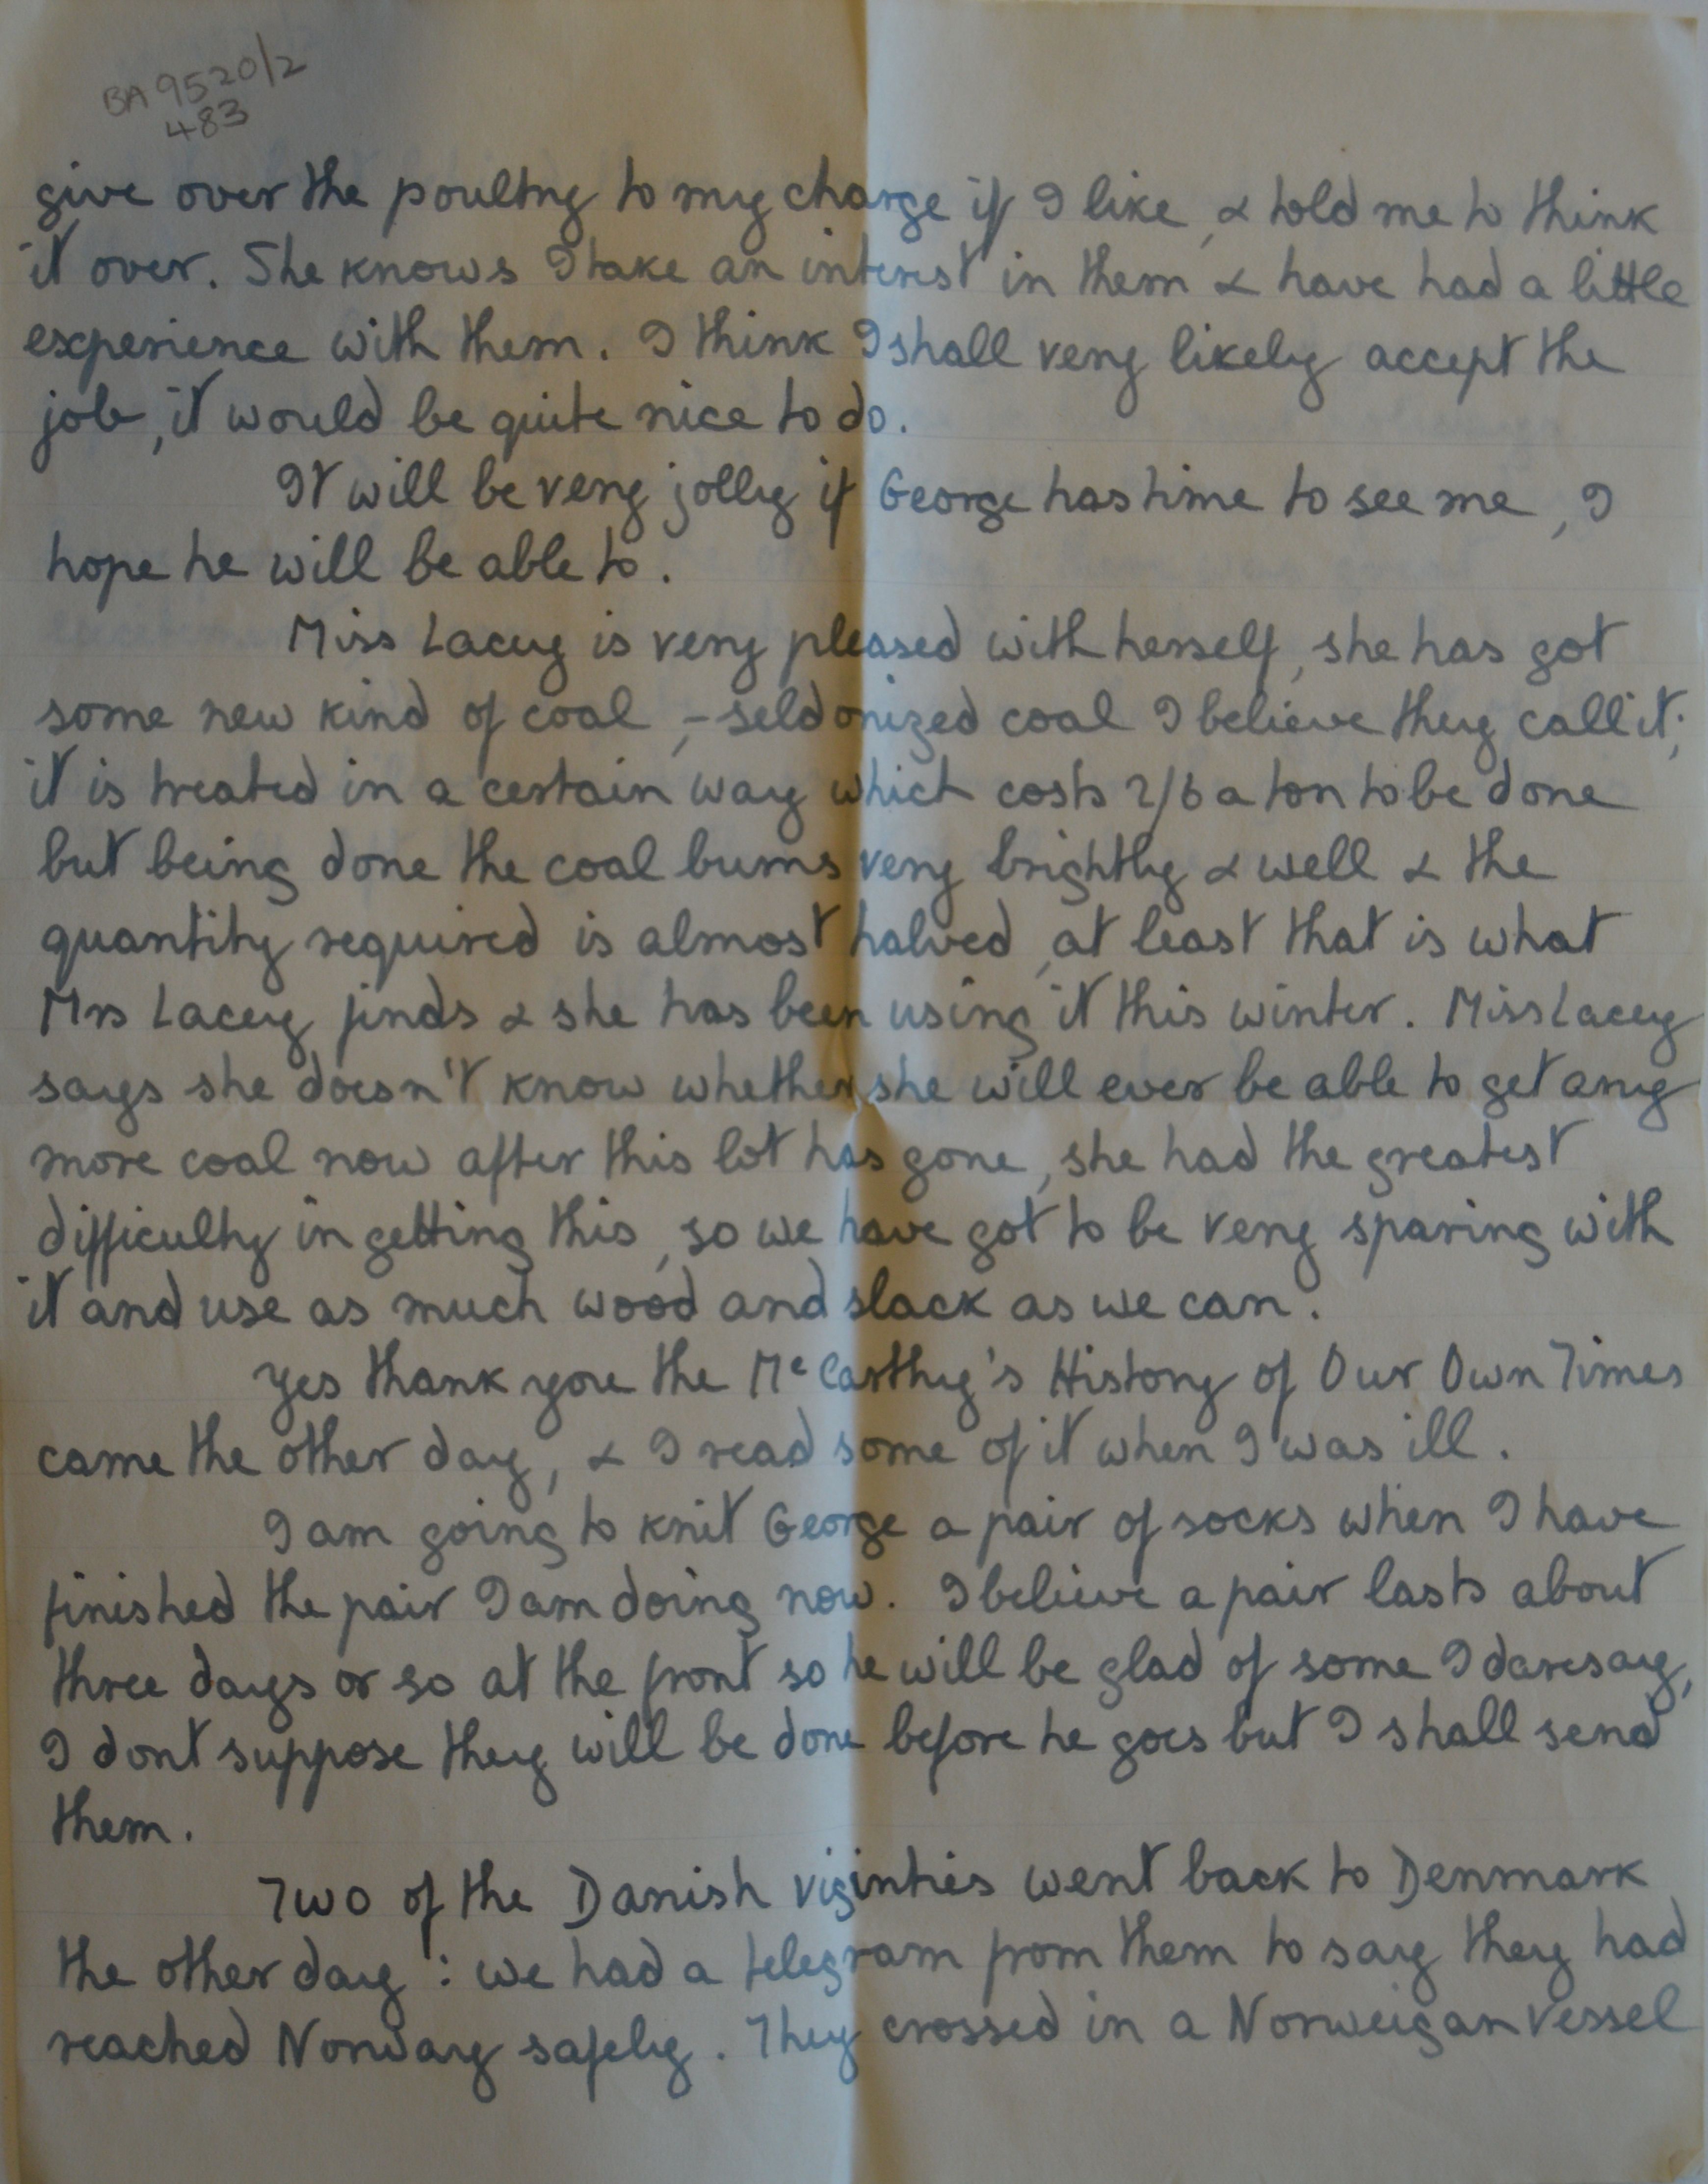 BA 9520/2
483
give over the poultry to my charge if I like, & told me to think
it over. She knows I take an interest in them & have had a little
experience with them. I think I shall very likely accept the
job, it would be quite nice to do.
It will be very jolly if George has time to see me, I
hope he will be able to.
Miss Lacey is very pleased with herself, she has got
some new kind of coal, - seldonized coal I believe they call it;
it is treated in a certain way which costs 2/6 a ton to be done
but being done the coal burns very brightly & well & the
quantity required is almost halved, at least that is what
Mrs Lacey finds & she has been using it this winter. Miss Lacey
says she doesn't know whether she will ever be able to get any
more coal now after this lot has gone, she had the greatest
difficulty in getting this, so we have got to be very sparing with
it and use as much wood and slack as we can.
Yes thank you the McCarthy's History of Our Own Times
came the other day, & I read some of it when I was ill.
I am going to knit George a pair of socks when I have
finished the pair I am doing now. I believe a pair lasts about
three days or so at the front so he will be glad of some I daresay,
I dont suppose they will be done before he goes but I shall send
them.
Two of the Danish went back to Denmark
the other day : we had a telegram from them to say they had
reached Norway safely. They crossed in a Norweigan vessel